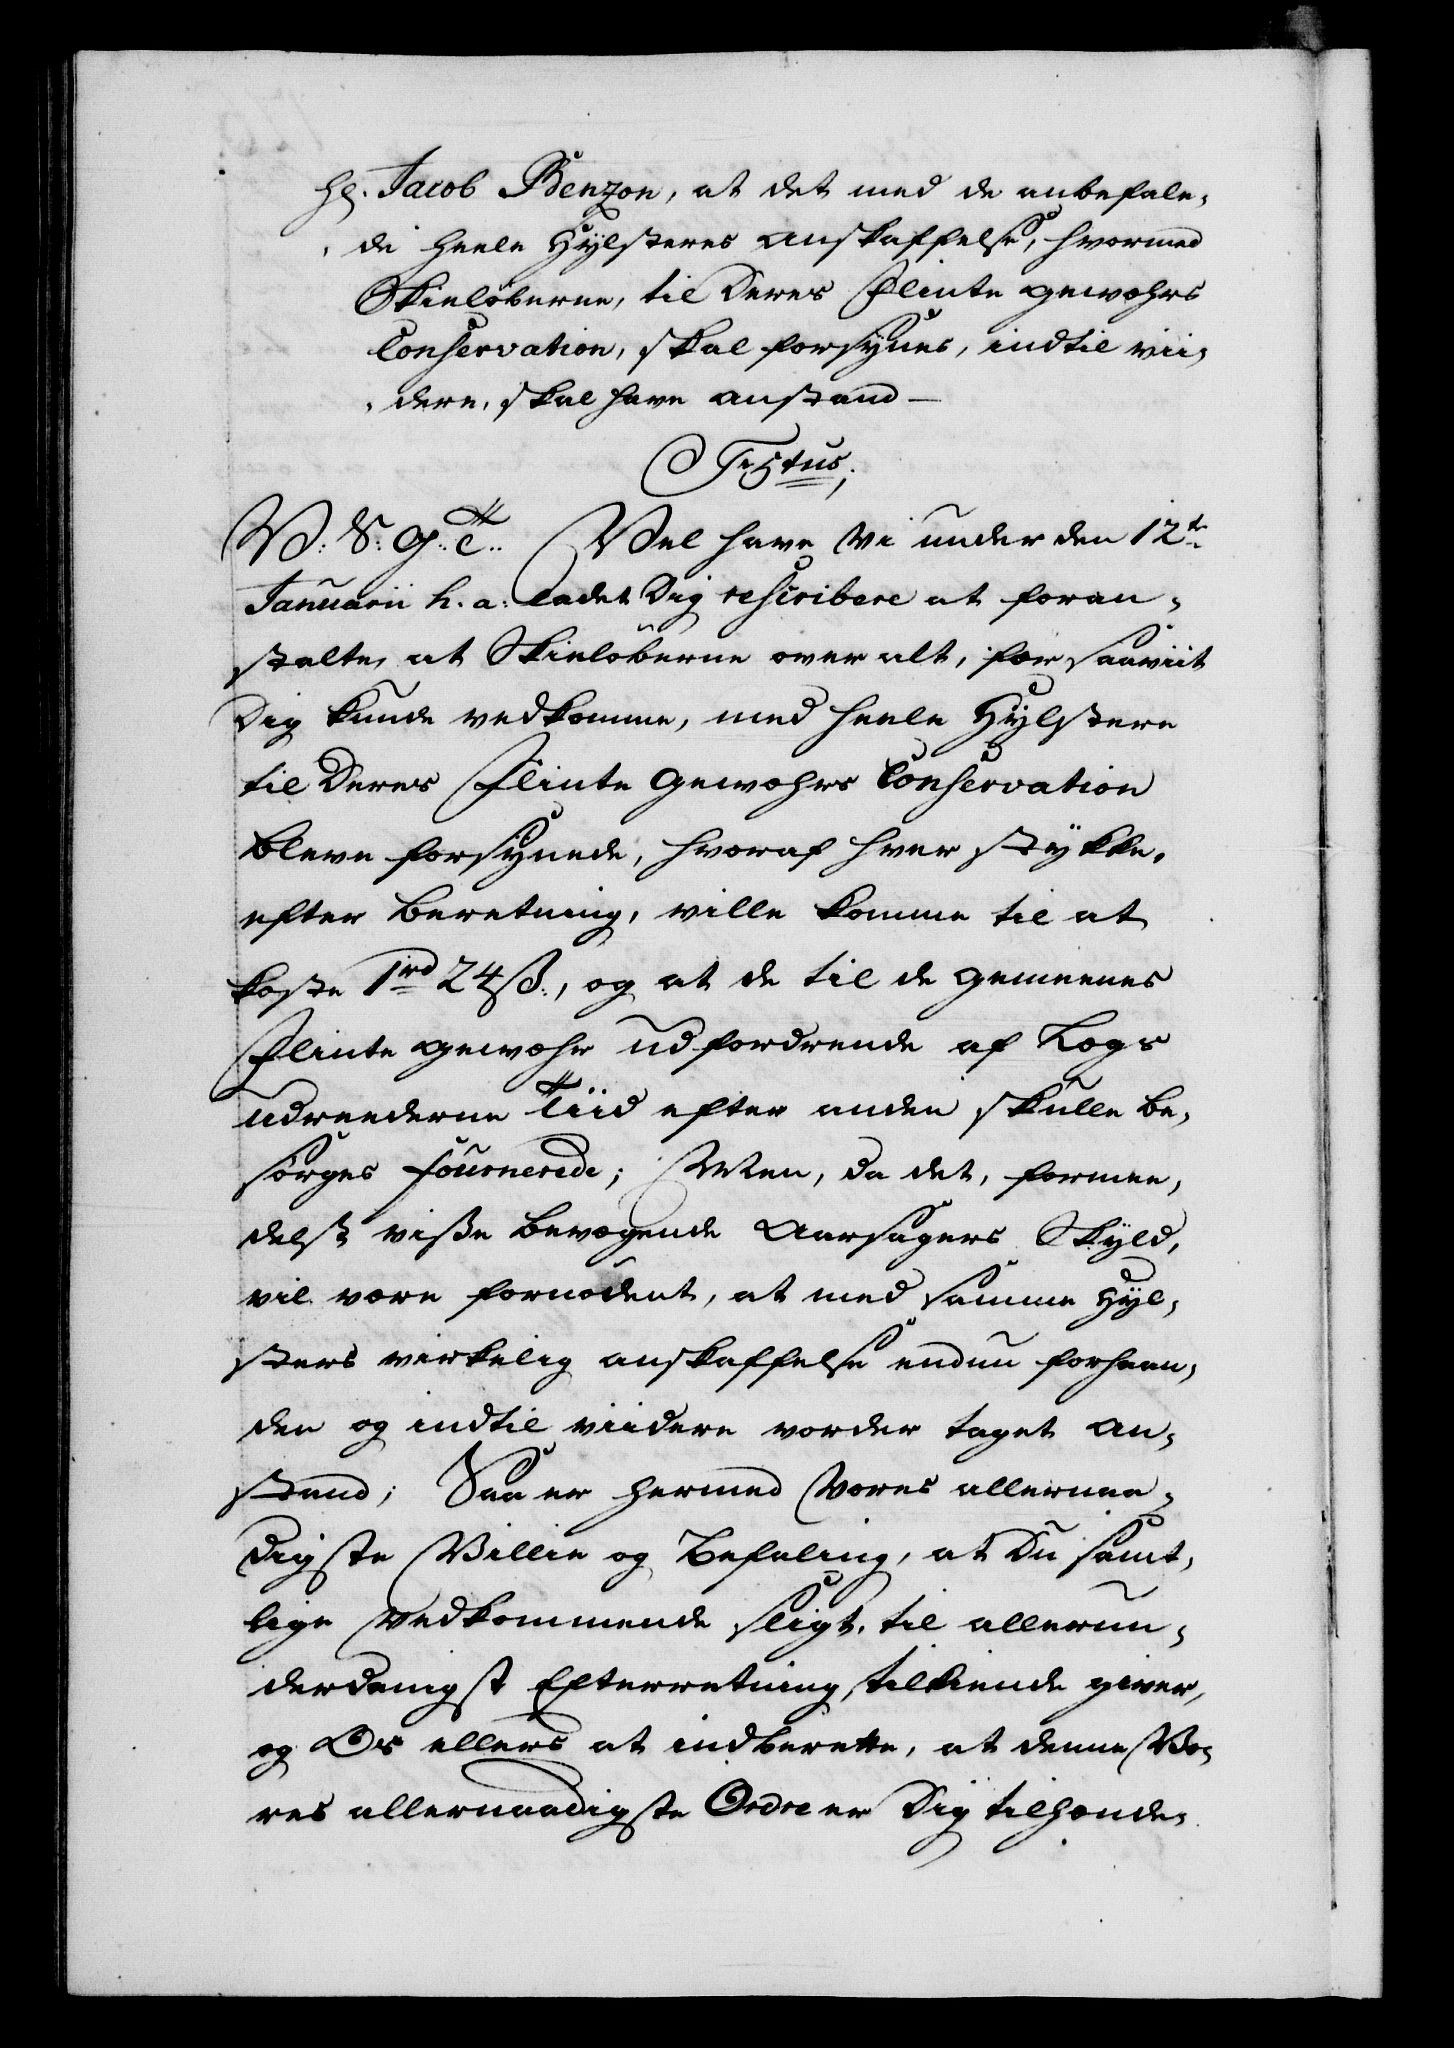 Hr. Jacob Benzon, at det med de anbefale-
de heele Hylsteres anskaffelse, hvormed
Skieløberne, til Deres Flinte gewæhrs
Conservation, skal forsynes, indtil vii-
dere, skal have anstand —
Textus;
V: S: G: T.. Vel have Vi under den 12te
Januarii h. a: ladet Dig rescribere at foran-
stalte, at Skieløberne over alt, for saaviit
Dig kunde vedkomme, med heele Hylstere
til Deres Flinte gewæhrs Conservation
bleve forsynede, hvoraf hver stykke,
efter beretning, ville komme til at
koste 1rd 24 ß:, og at de til de gemeenes
Flinte gewæhr udfordrende af Lægs
udreederne Tiid efter anden skulle be-
sørges fournerede; Men, da det, formee-
delst visse bevægende Aarsagers Skyld,
vil være fornødent, at med samme Hyl-
sters virkelig anskaffelse endnu forhaan-
den og indtil viidere vorder taget an-
stand; Saa er hermed Vores allernaa-
digste Villie og Befaling, at Du samt-
lige Vedkommende sligt, til allerun-
derdanigst Efterretning, tilkiende giver,
og Os ellers at indberette, at denne Vo-
res allernaadigste Ordre er Dig tilhænde-